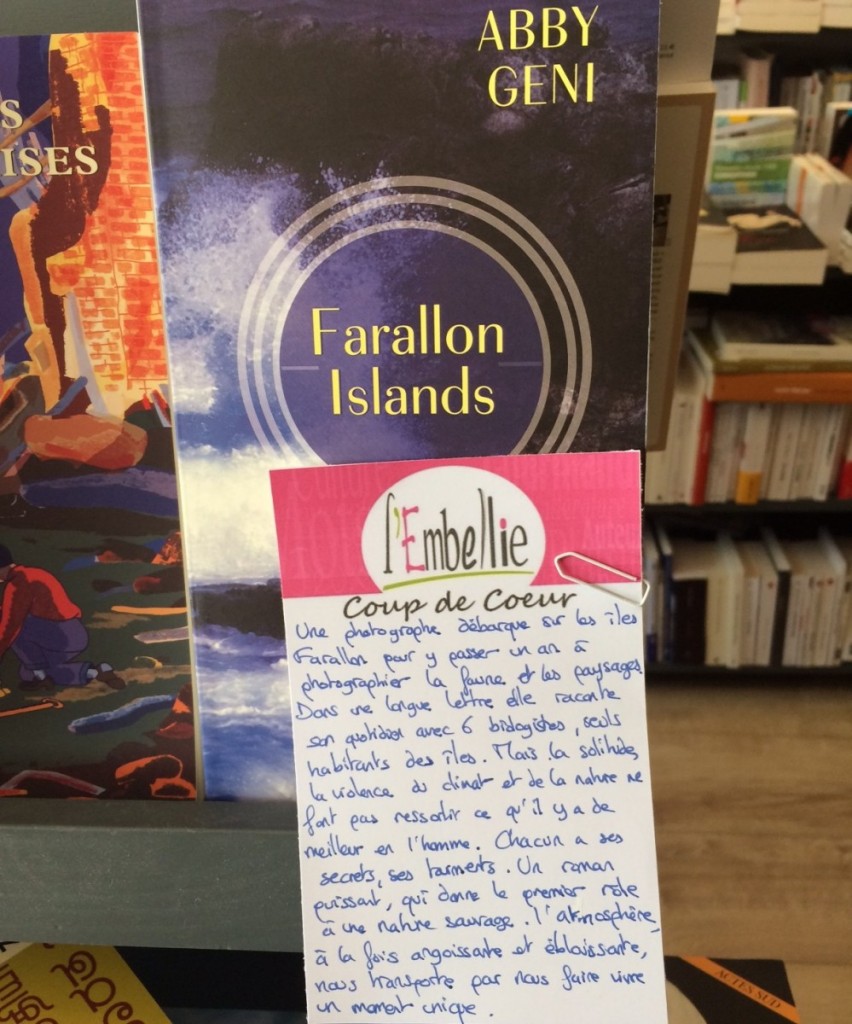 ABBY
GENI
S
ISES
Farallon
Islands
l'Embellie
Coup de Coeur
Une photographe débarque sur les îles
Farallon pour y passer un an à
photographier la faune et les paysages.
Dans une longue lettre elle raconte
son quotidien avec 6 biologistes, seuls
habitants des îles. Mais la solitude,
la violence du climat et de la nature ne
font pas ressortir ce qu'il y a de
meilleur en l'homme. Chacun a ses
secrets, ses tourments. Un roman
puissant, qui donne le premier rôle
à une nature sauvage. L'atmosphère,
à la fois angoissante et éblouissante,
nous transporte par nous faire vivre
un moment unique.
ACTES SUD